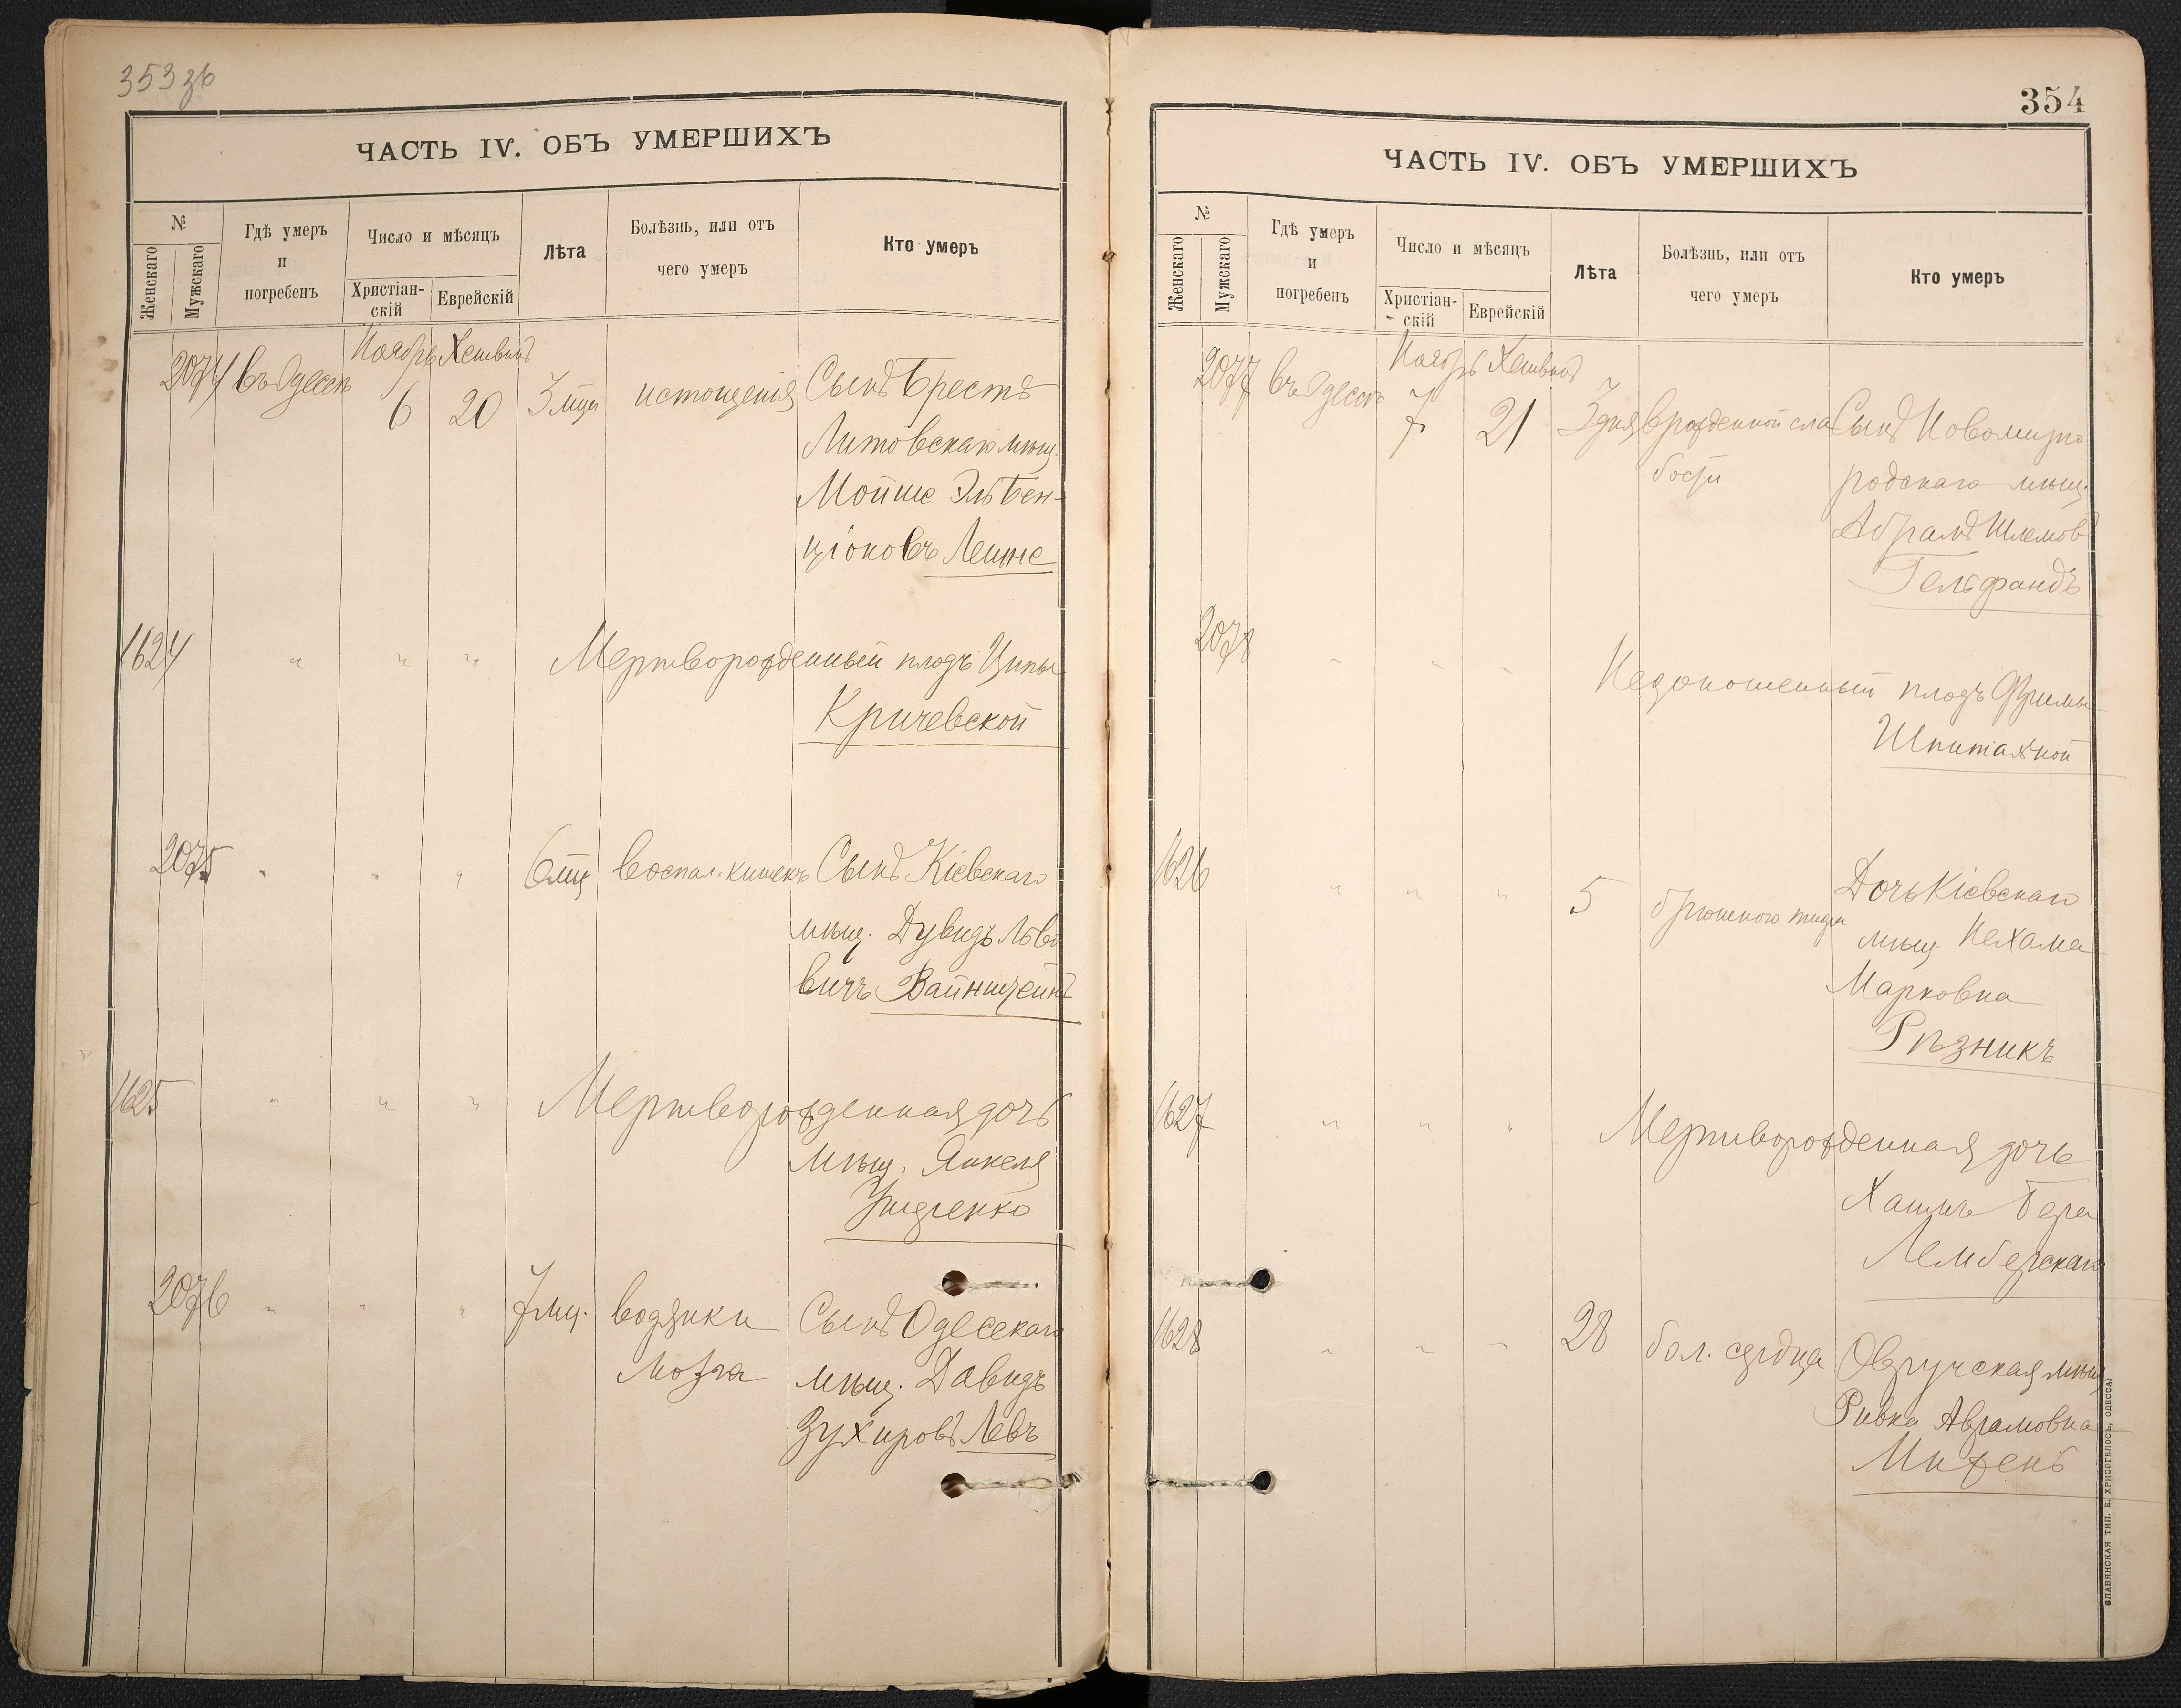 353 зв
ЧАСТЬ IV. ОБЪ УМЕРШИХЪ
№
Женскаго
Мужскаго
Гдѣ умеръ
и
погребенъ
Число и мѣсяцъ
Христіан-
скій
Еврейскій
Лѣта
Болѣзнь, или отъ
чего умеръ
Кто умеръ
Ноябрь Хешвонъ
2074 въ Одессѣ 6 20 3 мцы истощенія Сынъ Брестъ
Литовскаго мѣщ.
Мойше Эль Бен-
ціоновъ Леите
1624 " " " Мертворожденный плодъ Ципы
Кричевской
2075 " " " 6 мц воспал. кишекъ Сынъ Кіевскаго
мѣщ. Дувидъ Льво
вичъ Вайнштейнъ
1625 " " " Мертворожденная дочь
мѣщ. Янкеля
2076 " " " 7 мц. водянки Сынъ Одесскаго
мозга мѣщ. Давидъ
Зухировъ Левъ
354
ЧАСТЬ IV. ОБЪ УМЕРШИХЪ
№
Женскаго
Мужскаго
Гдѣ умеръ
и
погребенъ
Число и мѣсяцъ
Христіан-
скій
Еврейскій
Лѣта
Болѣзнь, или отъ
чего умеръ
Кто умеръ
Ноябрь Хешвонъ
2077 въ Одессѣ 7 21 3 дня врожденной сла Сынъ Новомирго
бости родскаго мѣщ.
Абрамъ Шлемовъ
Гельфандъ
2078 " " " Недоношенный плодъ Фримы
Шпитальной
1626 " " " 5 брюшного тифа Дочь Кіевскаго
мѣщ. Нехама
Марковна
Рѣзникъ
1627 " " " Мертворожденная дочь
Хаима Бера
Лембергскаго
1628 " " " 28 бол. сердца Овручская мѣщ
Ривка Аврамовна
Мизень
СЛАВЯНСКАЯ ТИП. Е. ХРИСОГЕЛОСЪ, ОДЕССА.